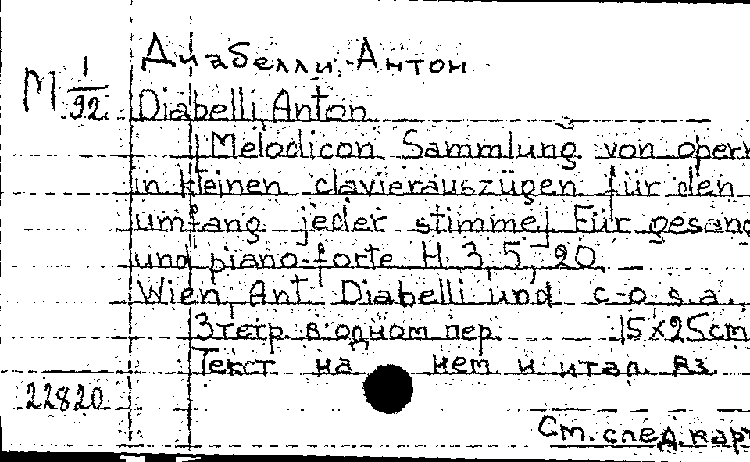 Диабелли, Антон
М 1/92
Diabelli, Anton
[Melodicon Sammlung von opern
in kleinen clavierauszügen für den
umfang jeder stimme] Für gesang
und piano-forte H 3, 5, 20
Wien, Ant. Diabelli und c-o s.a.
3 тетр. в одном пер. 15x25cm
Текст на нем и итал. яз.
22820
Ст. след. карт